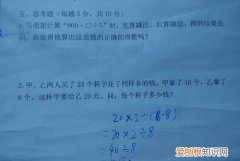 五、思考题（每题5分，共10分）
1.马虎在计算“800-□÷5”时，先算减法，后算除法，得到结果是
你能帮他算出这道题的正确的得数吗？
2.甲、乙两人买了24个杯子花了同样多的钱，甲拿了16个，乙拿了
8个，这样甲要给乙20元。问：每个杯子多少钱？
20×2÷(16-8)
=20×2÷8
=40÷8
爱刨根知识网